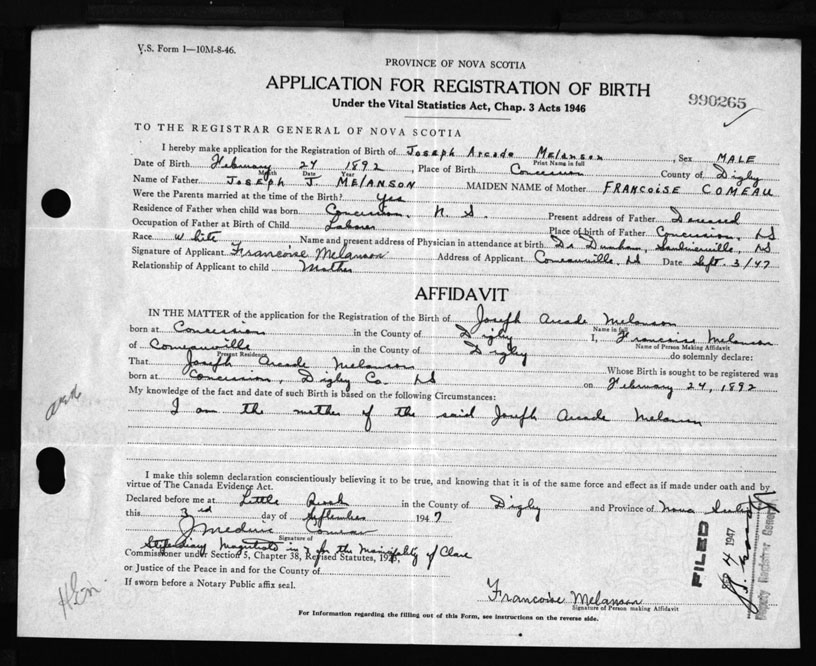 V.S. Form 1—10M-8-46.
PROVINCE OF NOVA SCOTIA
APPLICATION FOR REGISTRATION OF BIRTH
990265
Under the Vital Statistics Act, Chap. 3 Acts 1946
TO THE REGISTRAR GENERAL OF NOVA SCOTIA
I hereby make application for the Registration of Birth of Joseph Arcade Melanson, Sex MALE
Print Name in full
Date of Birth February 24 1892, Place of Birth Concession County of Digby
Month Date Year
Name of Father JOSEPH J. MELANSON MAIDEN NAME of Mother FRANCOISE COMEAU
Were the Parents married at the time of the Birth? Yes
Residence of Father when child was born Concession, N. S. Present address of Father Deceased
Occupation of Father at Birth of Child Labour Place of birth of Father Concession, NS
Race White Name and present address of Physician in attendance at birth Dr. Dunham, Saulnierville, NS
Signature of Applicant Francoise Melanson Address of Applicant Comeauville, NS Date Sept. 3/47
Relationship of Applicant to child Mother
AFFIDAVIT
IN THE MATTER of the application for the Registration of the Birth of Joseph Arcade Melanson
Name in full
born at Concession in the County of Digby I, Francoise Melanson
Name of Person Making Affidavit
of Comeauville in the County of Digby do solemnly declare:
Present Residence
That Joseph Arcade Melanson Whose Birth is sought to be registered was
born at Concession, Digby Co. NS on February 24, 1892
My knowledge of the fact and date of such Birth is based on the following Circumstances:
I am the mother of the said Joseph Arcade Melanson
I make this solemn declaration conscientiously believing it to be true, and knowing that it is of the same force and effect as if made under oath and by
virtue of The Canada Evidence Act.
Declared before me at Little Brook in the County of Digby and Province of Nova Scotia
this 3rd day of September 1947
J. Comeau
Signature of
Stipendiary Magistrate in & for the Municipality of Clare
Commissioner under Section 5, Chapter 38, Revised Statutes, 1923,
or Justice of the Peace in and for the County of
If sworn before a Notary Public affix seal.
Francoise Melanson
Signature of Person making Affidavit
For Information regarding the filling out of this Form, see instructions on the reverse side.
FILED
4 1947
Deputy Registrar General